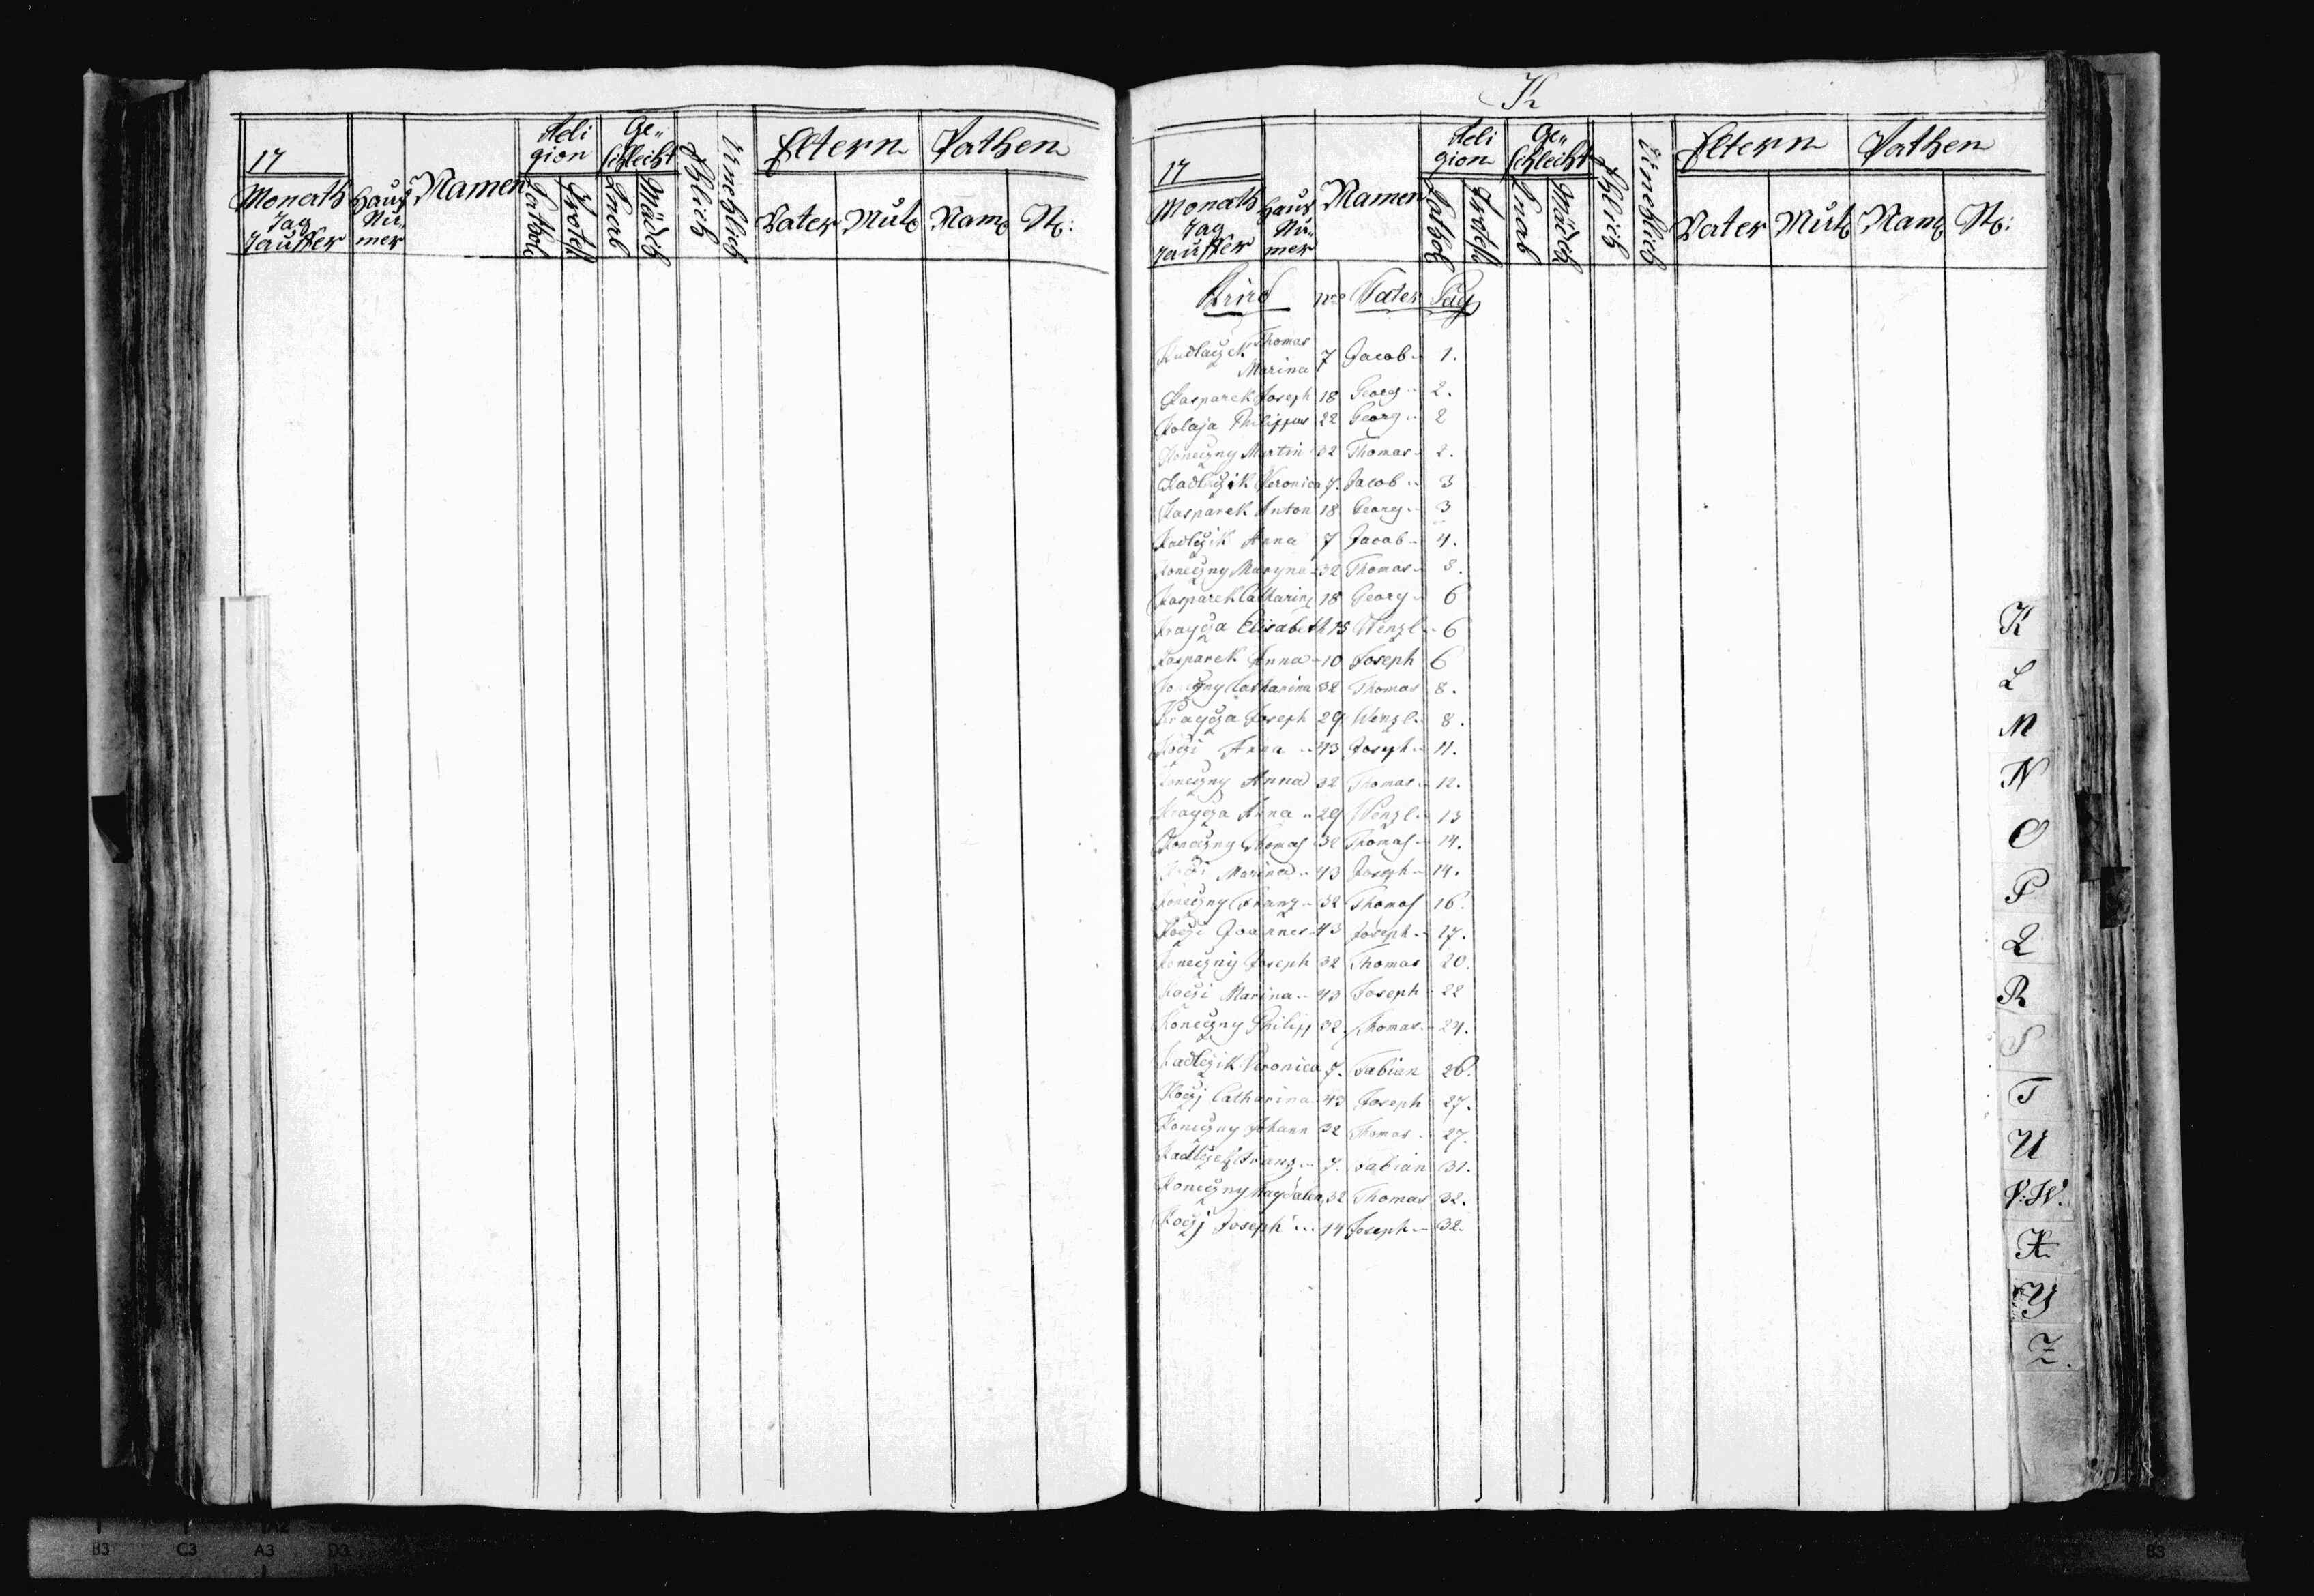 17
Monath
Tag
Tauffer
Haus
Nu¨
mer
Namen
Reli
gion
Cathol
Protest
Ge¨
schlecht
Knab
Mädch
Ehlich
Unehlich
Eltern
Vater Mutt
Pathen
Nam N:
K
17
Monath
Tag
Tauffer
Haus
Nu¨
mer
Namen
Reli
gion
Cathol
Protest
Ge¨
schlecht
Knab
Mädch
Ehlich
Unehlich
Eltern
Vater Mutt
Pathen
Nam N:
Kind nro Vater Pag
Kudlaczek Thomas
Marina 7 Jacob 1.
Kasparek Joseph 18 Georg 2.
Kolaja Philippus 22 Georg 2
Koneczny Martin 32 Thomas 2.
Kadlczik Veronica 7. Jacob 3
Kasparek Anton 18 Georg 3
Kadlczik Anna 7 Jacob 4.
Koneczny Maryna 32 Thomas
Kasparek Catharina 18 Georg 6
Kraycza Elisabeth 15 Wenzl 6
Kasparek Anna 10 Joseph 6
Koneczny Catharina 32 Thomas 8.
Kraycza Joseph 29 Wenzl 8.
Koczi Anna 43 Joseph 11.
Koneczny Anna 32 Thomas 12.
Kraycza Anna 29 Wenzl 13
Koneczny Thomas 32 Thomas 14.
Koczi Marina 43 Joseph 14.
Koneczny Franz 32 Thomas 16.
Koczi Joannes 43 Joseph 17.
Koneczny Joseph 32 Thomas 20.
Koczi Marina 43 Joseph 22
Koneczny Philipp 32. Thomas 24.
Kadlczik Veronica 7. Fabian 26.
Koczj Catharina 43 Joseph 27.
Koneczny Johann 32 Thomas 27.
Kadlczek Franz 7. Fabian 31.
Koneczny Magdalen 32 Thomas 32.
Koczj Joseph 14 Joseph 32.
K
L
M
N
O
P
Q
R
S
T
U
V:W.
X
Y
Z.
B3 C3 A3 D3 B3